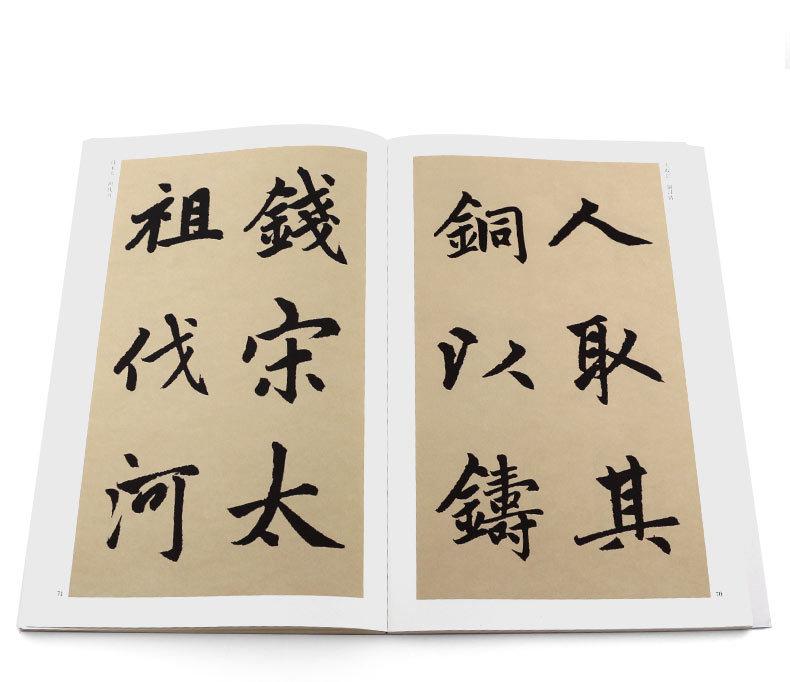 人取其
銅以鑄
70
錢宋太
祖伐河
71